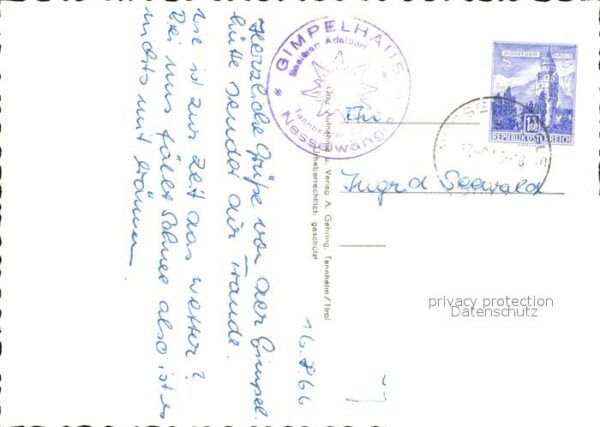 16.8.66
Herzliche Grüße von der Gimpel-
hütte sendet dir Traude.
wie ist zur Zeit das Wetter?
Bei uns fällt Schnee also ist es
nichts mit
GIMPELHAUS
Besitzer: Adalbert
Tannheimer
Nesselwängle
Urh. Aufnahme u. Verlag A. Gehring, Tannheim/Tirol
Urheberrechtlich geschützt
REPUBLIK ÖSTERREICH
Ingrid Seewald
privacy protection
Datenschutz